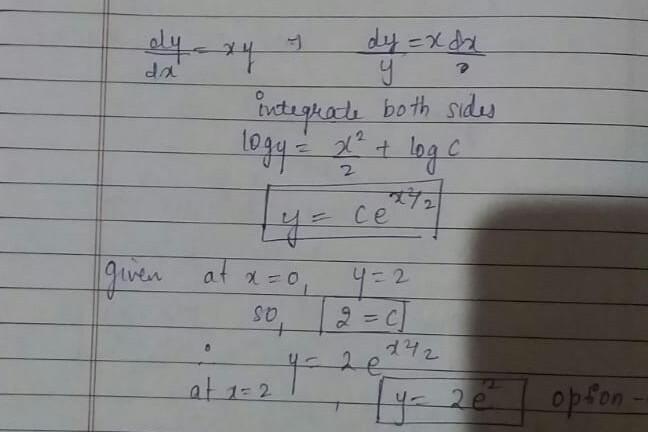 dy/dx = xy ⇒ dy/y = x dx
integrate both sides
log y = x²/2 + log C
y = Ce^(x²/2)
given at x=0, y=2
so, 2 = C
∴ y = 2e^(x²/2)
at x=2, y = 2e² option -